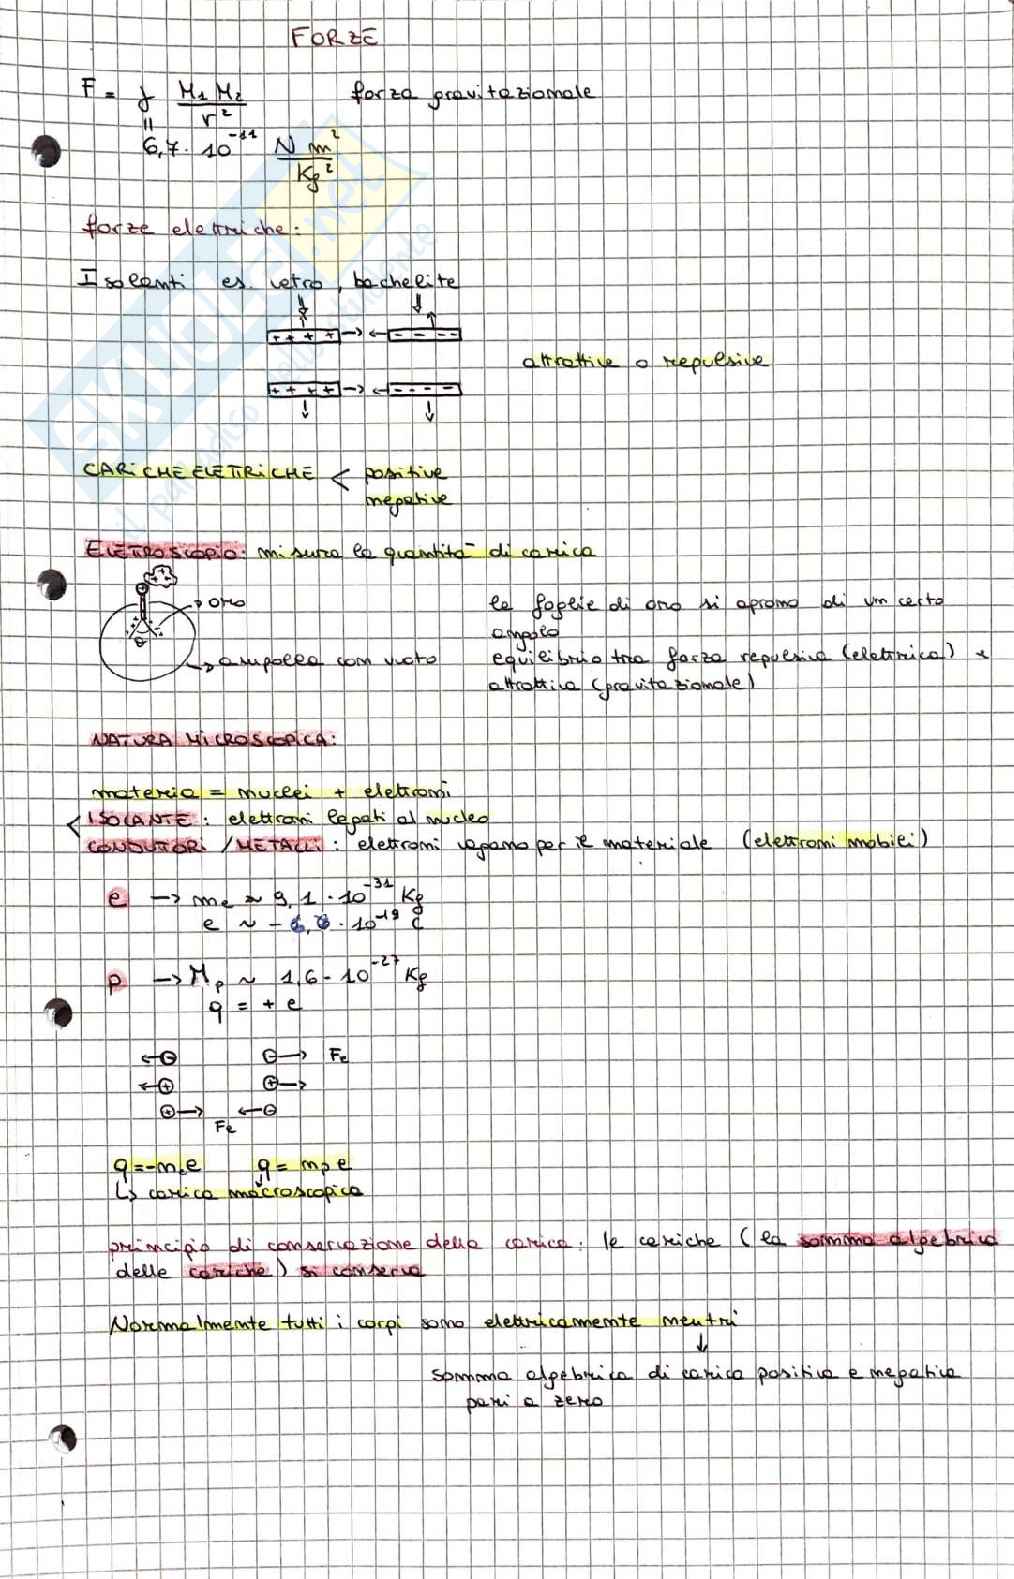 FORZE
F = γ M1 M2 / r² forza gravitazionale
=
6,7 · 10^-11 N m² / Kg²
forze elettriche:
Isolanti es. vetro, bachelite
+ + + + → ← - - - -
attrattive o repulsive
+ + + + → ← - - - -
CARICHE ELETTRICHE < positive
negative
ELETTROSCOPIO: misura la quantità di carica
→ oro
le foglie di oro si aprono di un certo
angolo
→ ampolla con vuoto
equilibrio tra forza repulsiva (elettrica) e
attrattiva (gravitazionale)
NATURA MICROSCOPICA:
materia = nuclei + elettroni
< ISOLANTE: elettroni legati al nucleo
CONDUTTORI / METALLI: elettroni vagano per il materiale (elettroni mobili)
e → me ~ 9,1 · 10^-31 Kg
e ~ -1,6 · 10^-19 C
p → Mp ~ 1,6 - 10^-27 Kg
q = + e
← ⊖ ⊖ → Fe
← ⊕ ⊕ →
⊕ → ← ⊖
Fe
q = -nₑe q = nₚe
↳ carica macroscopica
principio di conservazione della carica: le cariche (la somma algebrica
delle cariche) si conserva
Normalmente tutti i corpi sono elettricamente neutri
↓
somma algebrica di carica positiva e negativa
pari a zero
SKUOLA.net